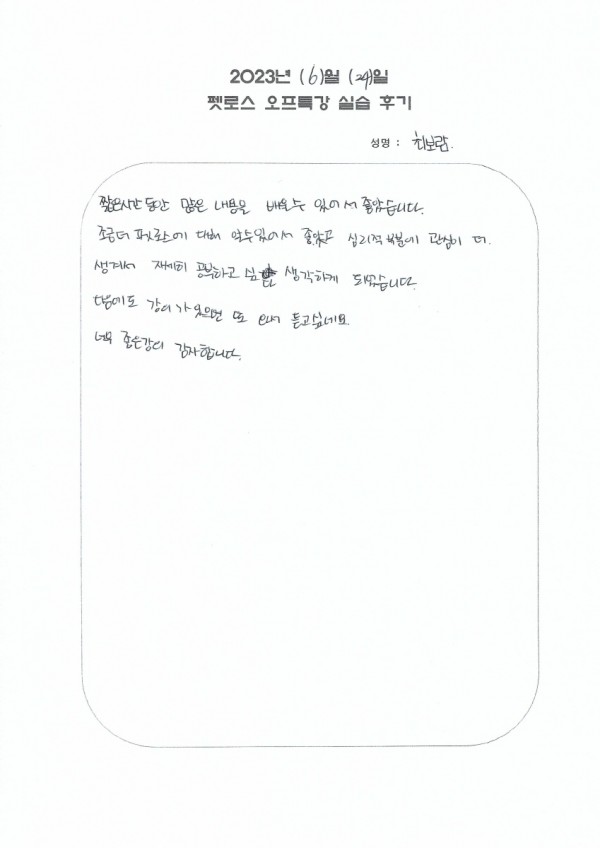 2023년 (6)월 (24)일
펫로스 오프특강 실습 후기
성명 : 최보람.
짧은시간 동안 많은 내용을 배울수 있어서 좋았습니다.
조금더 펫로스에 대해 알수있어서 좋았고 심리적 부분에 관심이 더.
생겨서 자세히 공부하고 싶 생각하게 되었습니다.
다음에도 강의가 있으면 또 와서 듣고싶네요.
너무 좋은강의 감사합니다.